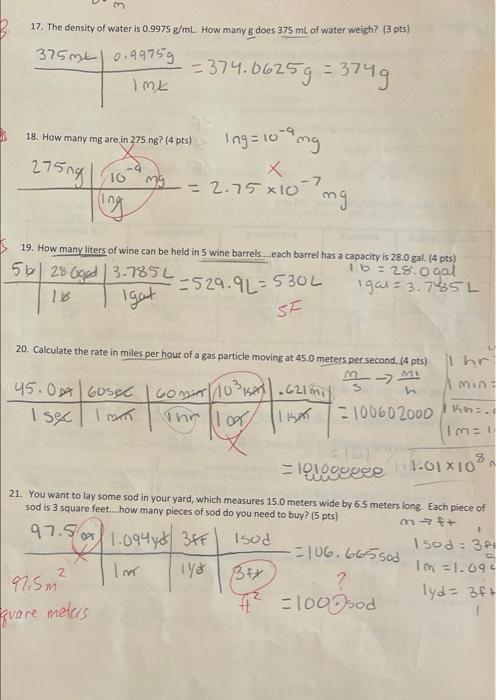 17. The density of water is 0.9975 g/mL. How many g does 375 mL of water weigh? (3 pts)
375mL | 0.9975g
1 mL
= 374.0625g = 374g
18. How many mg are in 275 ng? (4 pts)
1ng = 10⁻⁹ mg
X
275ng | 10⁻⁹ mg
1ng
= 2.75 x10⁻⁷ mg
X
19. How many liters of wine can be held in 5 wine barrels....each barrel has a capacity is 28.0 gal. (4 pts)
1 b = 28.0gal
1gal = 3.785 L
5b | 28.0gal | 3.785L
1b | 1gal
= 529.9L = 530L
SF
20. Calculate the rate in miles per hour of a gas particle moving at 45.0 meters per second. (4 pts)
m/s → mi/h
1 hr
1 min =
1 km = .
1m = 1
45.0m | 60sec | 60min | 10³ km | .621mi
1 sec | 1 min | 1hr | 1m | 1km
= 100602000
X
1.01 x 10⁸
21. You want to lay some sod in your yard, which measures 15.0 meters wide by 6.5 meters long. Each piece of
sod is 3 square feet....how many pieces of sod do you need to buy? (5 pts)
m → ft
1 sod = 3
1m = 1.09
1yd = 3ft
97.5m | 1.094yd | 3ft | 1sod
1m | 1yd | 3ft
= 106.665sod
X
97.5m²
meters
ft²
?
= 100 sod